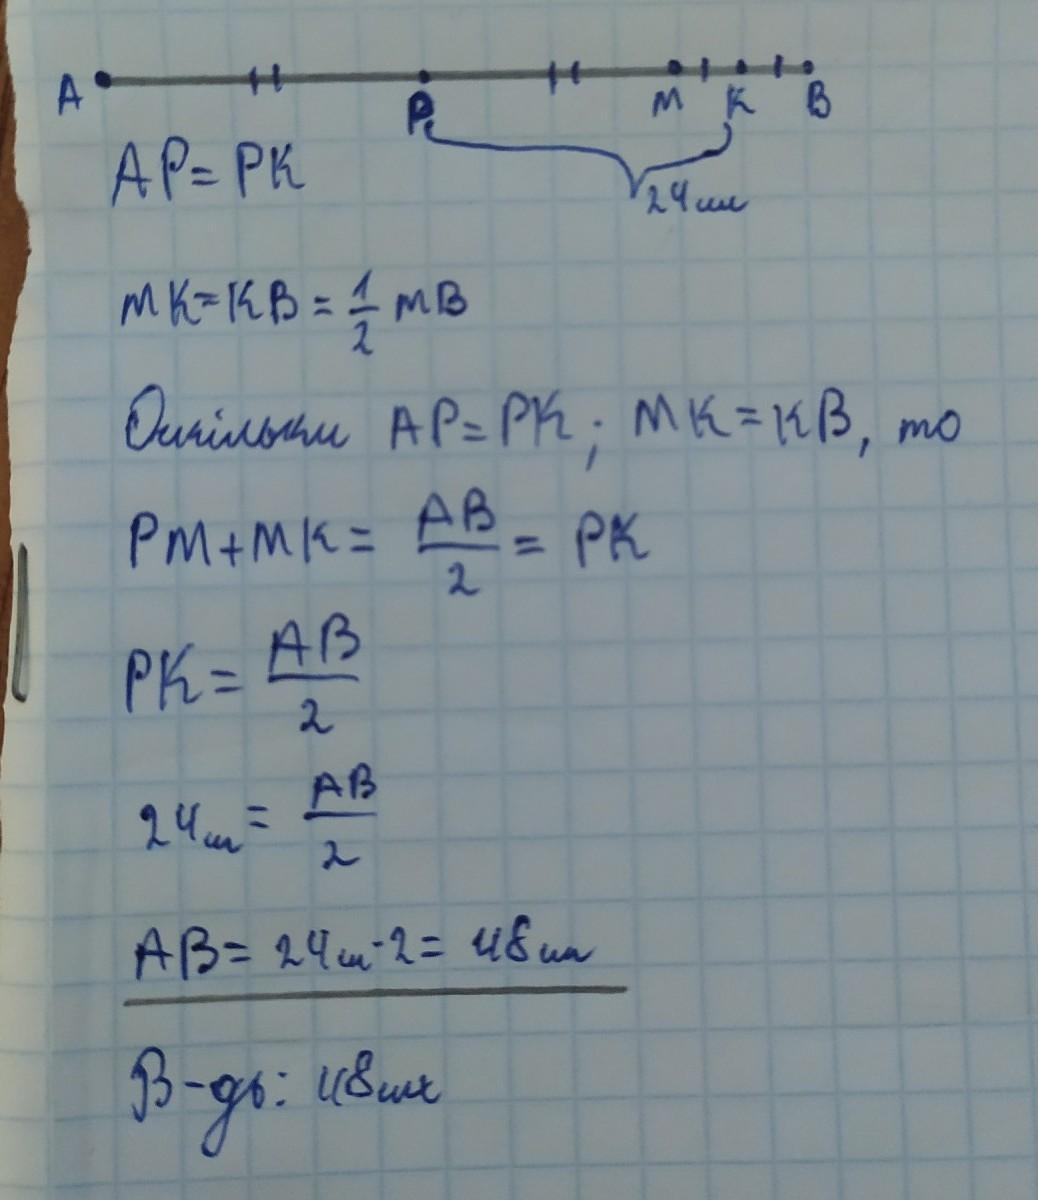 A P M K B
24см
AP = PK
MK = KB = 1/2 MB
Оскільки AP = PK; MK = KB, то
PM + MK = AB/2 = PK
PK = AB/2
24см = AB/2
AB = 24см · 2 = 48см
В-дь: 48см